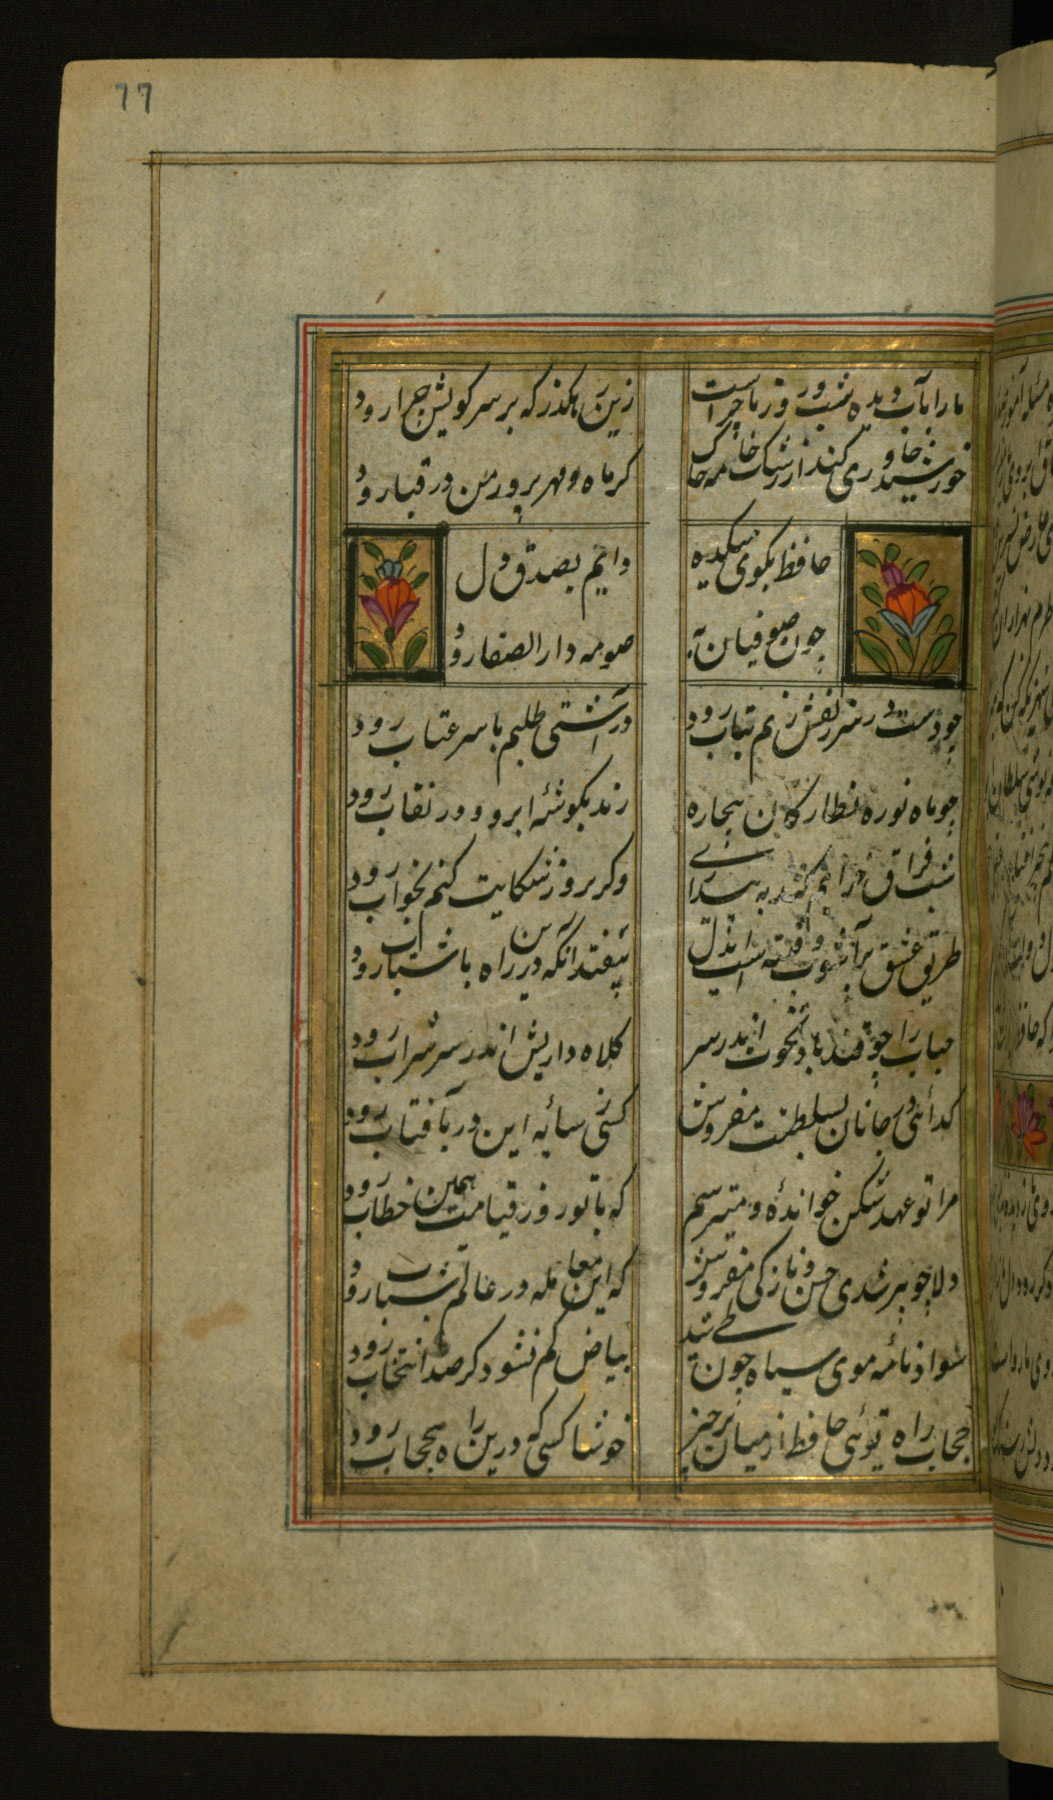 77
ما را بآب دیده شب و روز ماجراست
زین رهکذر که بر سر کویش چرا رود
خورشید خاوری کند از رشک جامه چاک
کر ماه مهرپرور من در قبا رود
حافظ بکوی میکده
دایم بصدق دل
چون صوفیان
صومعه دار الصفا رود
چو دست در سر زلفش زنم بتاب رود
ور آشتی طلبم با سر عتاب رود
چو ماه نو ره نظارکان بیچاره
زند بکوشهٔ ابرو و در نقاب رود
شب فراق خرابم کند به بیداری
وکر بروز شکایت کنم بخواب رود
طریق عشق پرآشوب و فتنه است ایدل
بیفتد آنکه درین راه با شتاب رود
حباب را چو فتد باد نخوت اندر سر
کلاه داریش اندر سر شراب رود
کدائی در جانان بسلطنت مفروش
کسی ز سایه این در بآفتاب رود
مرا تو عهدشکن خواندهٔ و میترسم
که با تو روز قیامت همین خطاب رود
دلا چو پیر شدی حسن و نازکی مفروش
که این معامله در عالم شباب رود
سواد نامهٔ موی سیاه چون طی شد
بیاض کم نشود کر صد انتخاب رود
حجاب راه توئی حافظ از میان برخیز
خوشا کسی که درین راه بیحجاب رود